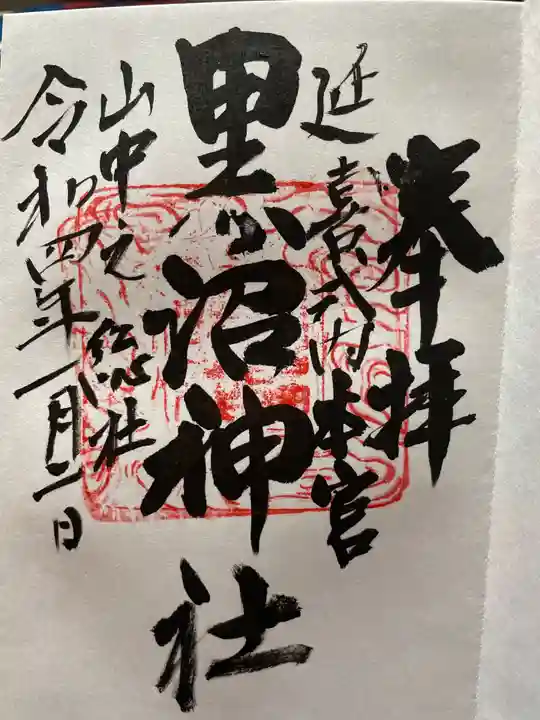 奉拝
延喜式内本宮
黒沼神社
山中之総社
令和四年一月二日